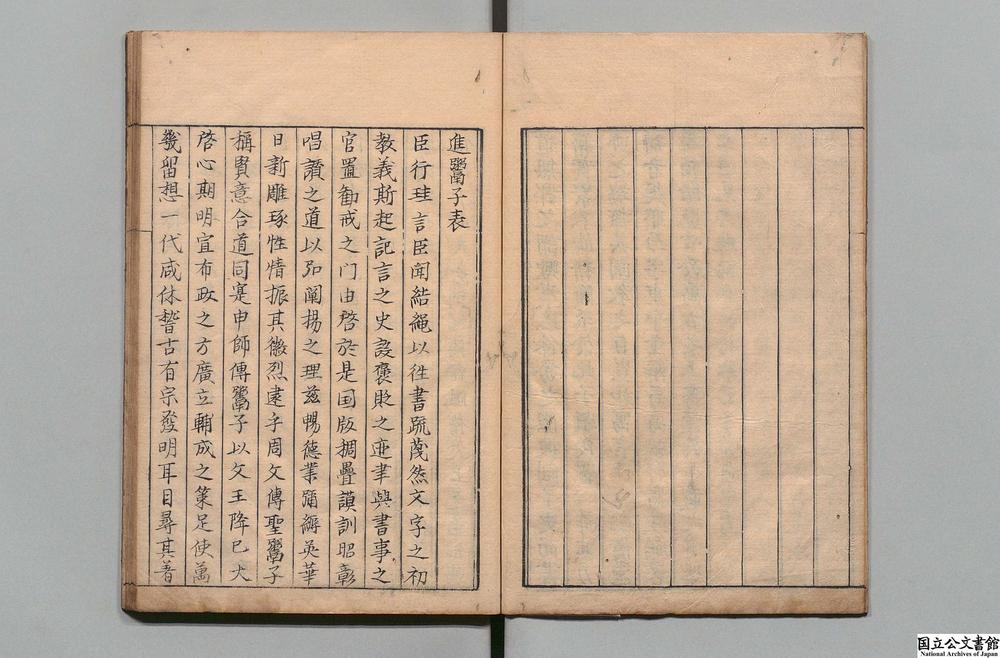 進鬻子表
臣行珪言臣聞結繩以徃書疏蔑然文字之初
教義斯起記言之史設褒貶之迹聿興書事之
官置勧戒之門由啓於是国版稠疊謨訓昭彰
唱讃之道以弘闡揚之理茲暢德業彌縟英華
日新雕琢性情振其徽烈逮乎周文傳聖鬻子
稱賢意合道同寔申師傳鬻子以文王降己大
啓心期明宣布政之方廣立輔成之策足使萬
幾留想一代咸休稽古有宗發明耳目尋其著
国立公文書館
National Archives of Japan